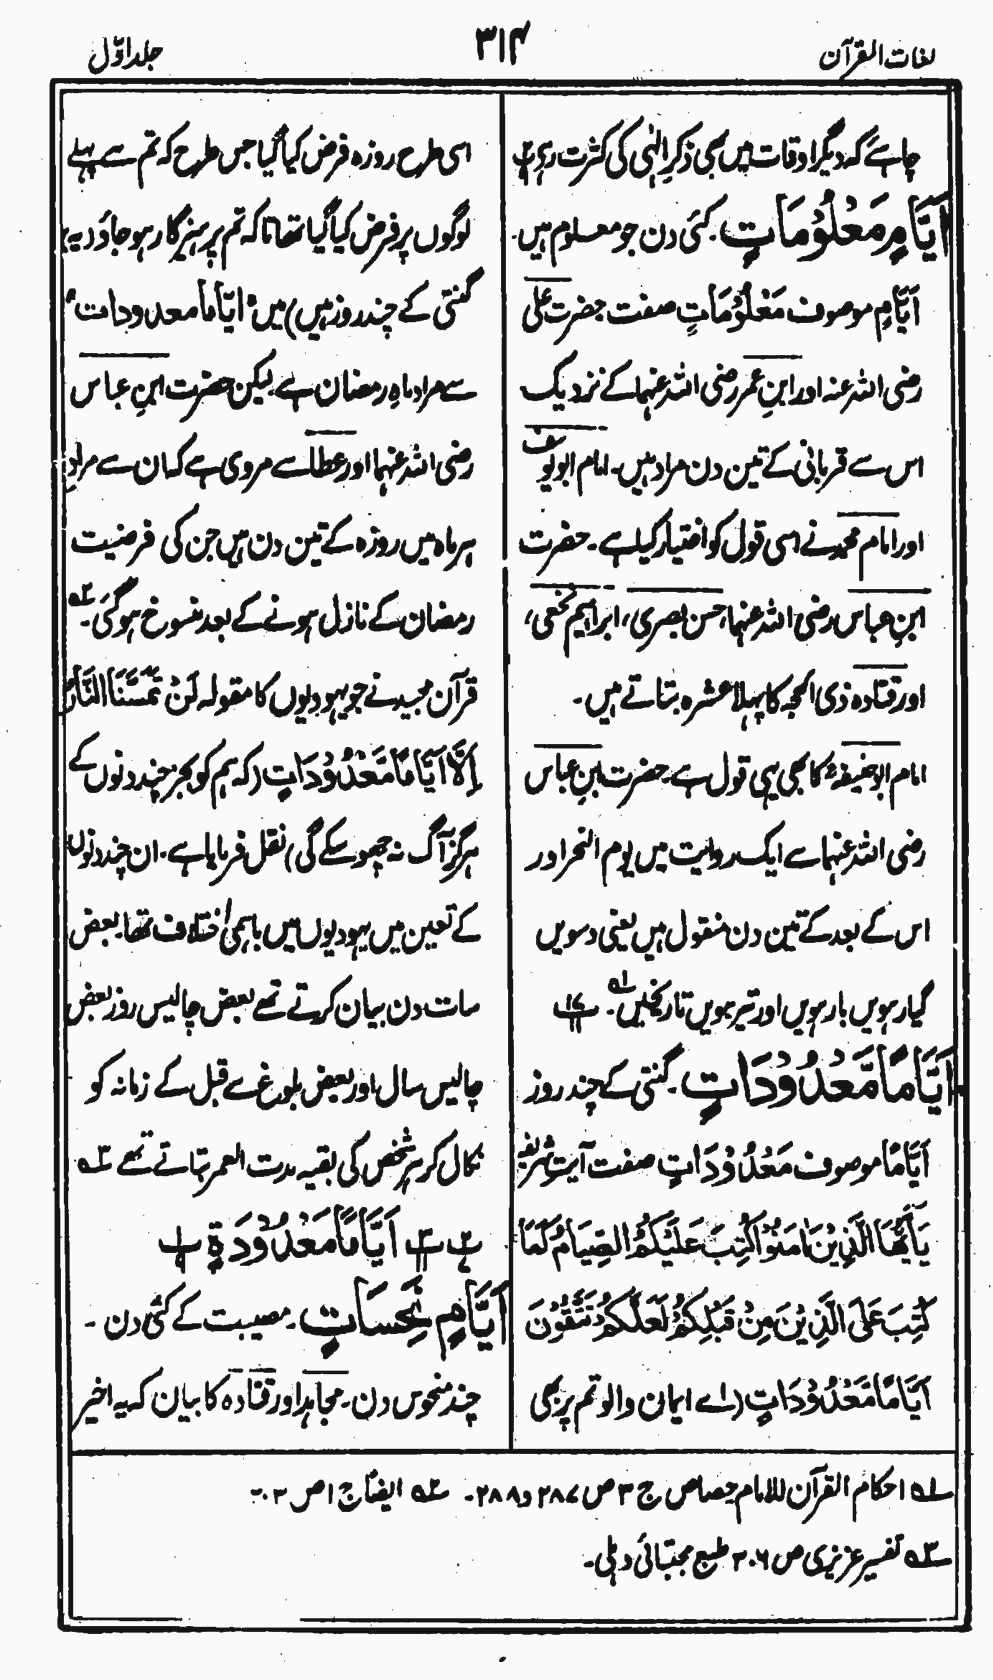 لغات القرآن
۳۱۴
جلد اوّل
چاہئے کہ دیگر اوقات میں بھی ذکرِ الٰہی کی کثرت رہے
اَیَّامٍ مَعْلُوْمَاتٍ ۔ کئی دن جو معلوم ہیں ۔
اَیَّامٍ موصوف مَعْلُوْمَاتٍ صفت حضرت علی
رضی اللہ عنہ اور ابنِ عمر رضی اللہ عنہما کے نزدیک
اس سے قربانی کے تین دن مراد ہیں۔ امام ابو یوسف
اور امام محمد نے اسی قول کو اختیار کیا ہے ۔ حضرت
ابنِ عباس رضی اللہ عنہما، حسن بصری، ابراہیم نخعی،
اور قتادہ ذی الحجہ کا پہلا عشرہ بتاتے ہیں ۔
امام ابو حنیفہؒ کا بھی یہی قول ہے ۔ حضرت ابنِ عباس
رضی اللہ عنہما سے ایک روایت میں یوم النحر اور
اس کے بعد کے تین دن منقول ہیں یعنی دسویں
گیارہویں بارہویں اور تیرہویں تاریخیں ۔ لہ ۱۷/۱۱
اَیَّامًا مَّعْدُوْدَاتٍ ۔ گنتی کے چند روز
اَیَّامًا موصوف مَعْدُوْدَاتٍ صفت آیتِ شریفہ
یٰٓاَیُّهَا الَّذِیْنَ اٰمَنُوْا كُتِبَ عَلَیْكُمُ الصِّیَامُ كَمَا
كُتِبَ عَلَی الَّذِیْنَ مِنْ قَبْلِكُمْ لَعَلَّكُمْ تَتَّقُوْنَ
اَیَّامًا مَّعْدُوْدَاتٍ (اے ایمان والو تم پر بھی
اسی طرح روزہ فرض کیا گیا جس طرح کہ تم سے پہلے
لوگوں پر فرض کیا گیا تھا تاکہ تم پرہیزگار ہو جاؤ (یہ
گنتی کے چند روز ہیں) میں "ایّاماً معدودات"
سے مراد ماہِ رمضان ہے لیکن حضرت ابنِ عباس
رضی اللہ عنہما اور عطا سے مروی ہے کہ ان سے مراد
ہر ماہ میں روزہ کے تین دن ہیں جن کی فرضیت
رمضان کے نازل ہونے کے بعد منسوخ ہو گئی ۔ ۲ہ
قرآن مجید نے جو یہودیوں کا مقولہ لَنْ تَمَسَّنَا النَّارُ
اِلَّا اَیَّامًا مَّعْدُوْدَاتٍ (کہ ہم کو بجز چند دنوں کے
ہرگز آگ نہ چھو سکے گی) نقل فرمایا ہے ۔ ان چند دنوں
کے تعین میں یہودیوں میں باہمی اختلاف تھا ۔ بعض
سات دن بیان کرتے تھے بعض چالیس روز بعض
چالیس سال اور بعض بلوغ سے قبل کے زمانہ کو
نکال کر ہر شخص کی بقیہ مدت العمر بتاتے تھے ۳ہ
اَیَّامًا مَعْدُوْدَةٍ
اَیَّامٍ نَّحِسَاتٍ ۔ مصیبت کے کئی دن ۔
چند منحوس دن ۔ مجاہد اور قتادہ کا بیان کہ یہ اخیر
لہ احکام القرآن للامام جصاص ج ۳ ص ۲۸۷ و ۲۸۸ ۔ ۲ہ ایضًا ج ۱ ص ۲۰۲
۳ہ تفسیر عزیزی ص ۳۰۶ طبع مجتبائی دہلی ۔